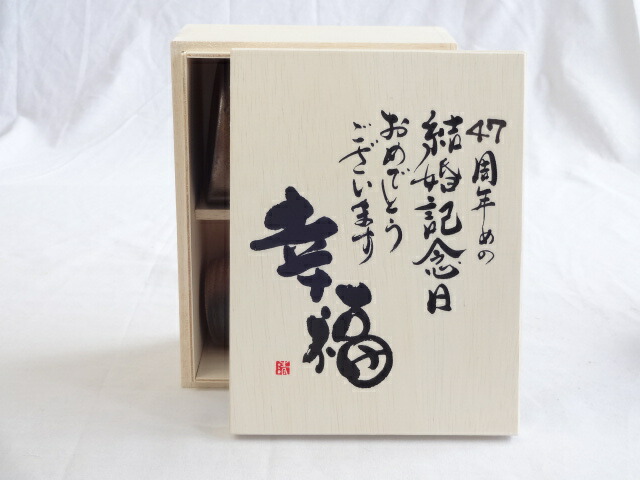 47周年めの
結婚記念日
おめでとう
ございます
幸福